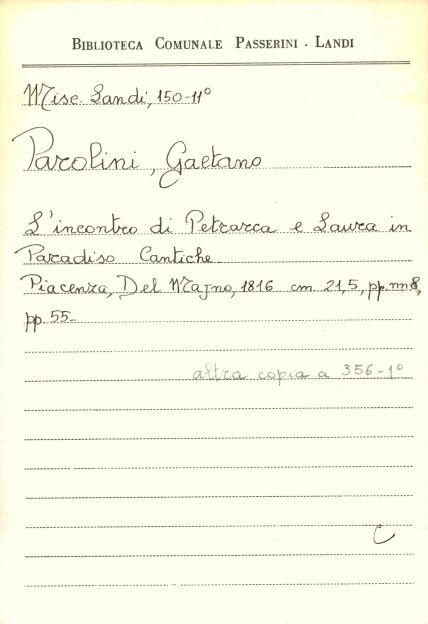 BIBLIOTECA COMUNALE PASSERINI - LANDI
Misc. Landi, 150-11°
Parolini, Gaetano
L'incontro di Petrarca e Laura in
Paradiso Cantiche
Piacenza, Del Majno, 1816 cm 21,5, pp. nn 8,
pp. 55-
altra copia a 356-1°
C